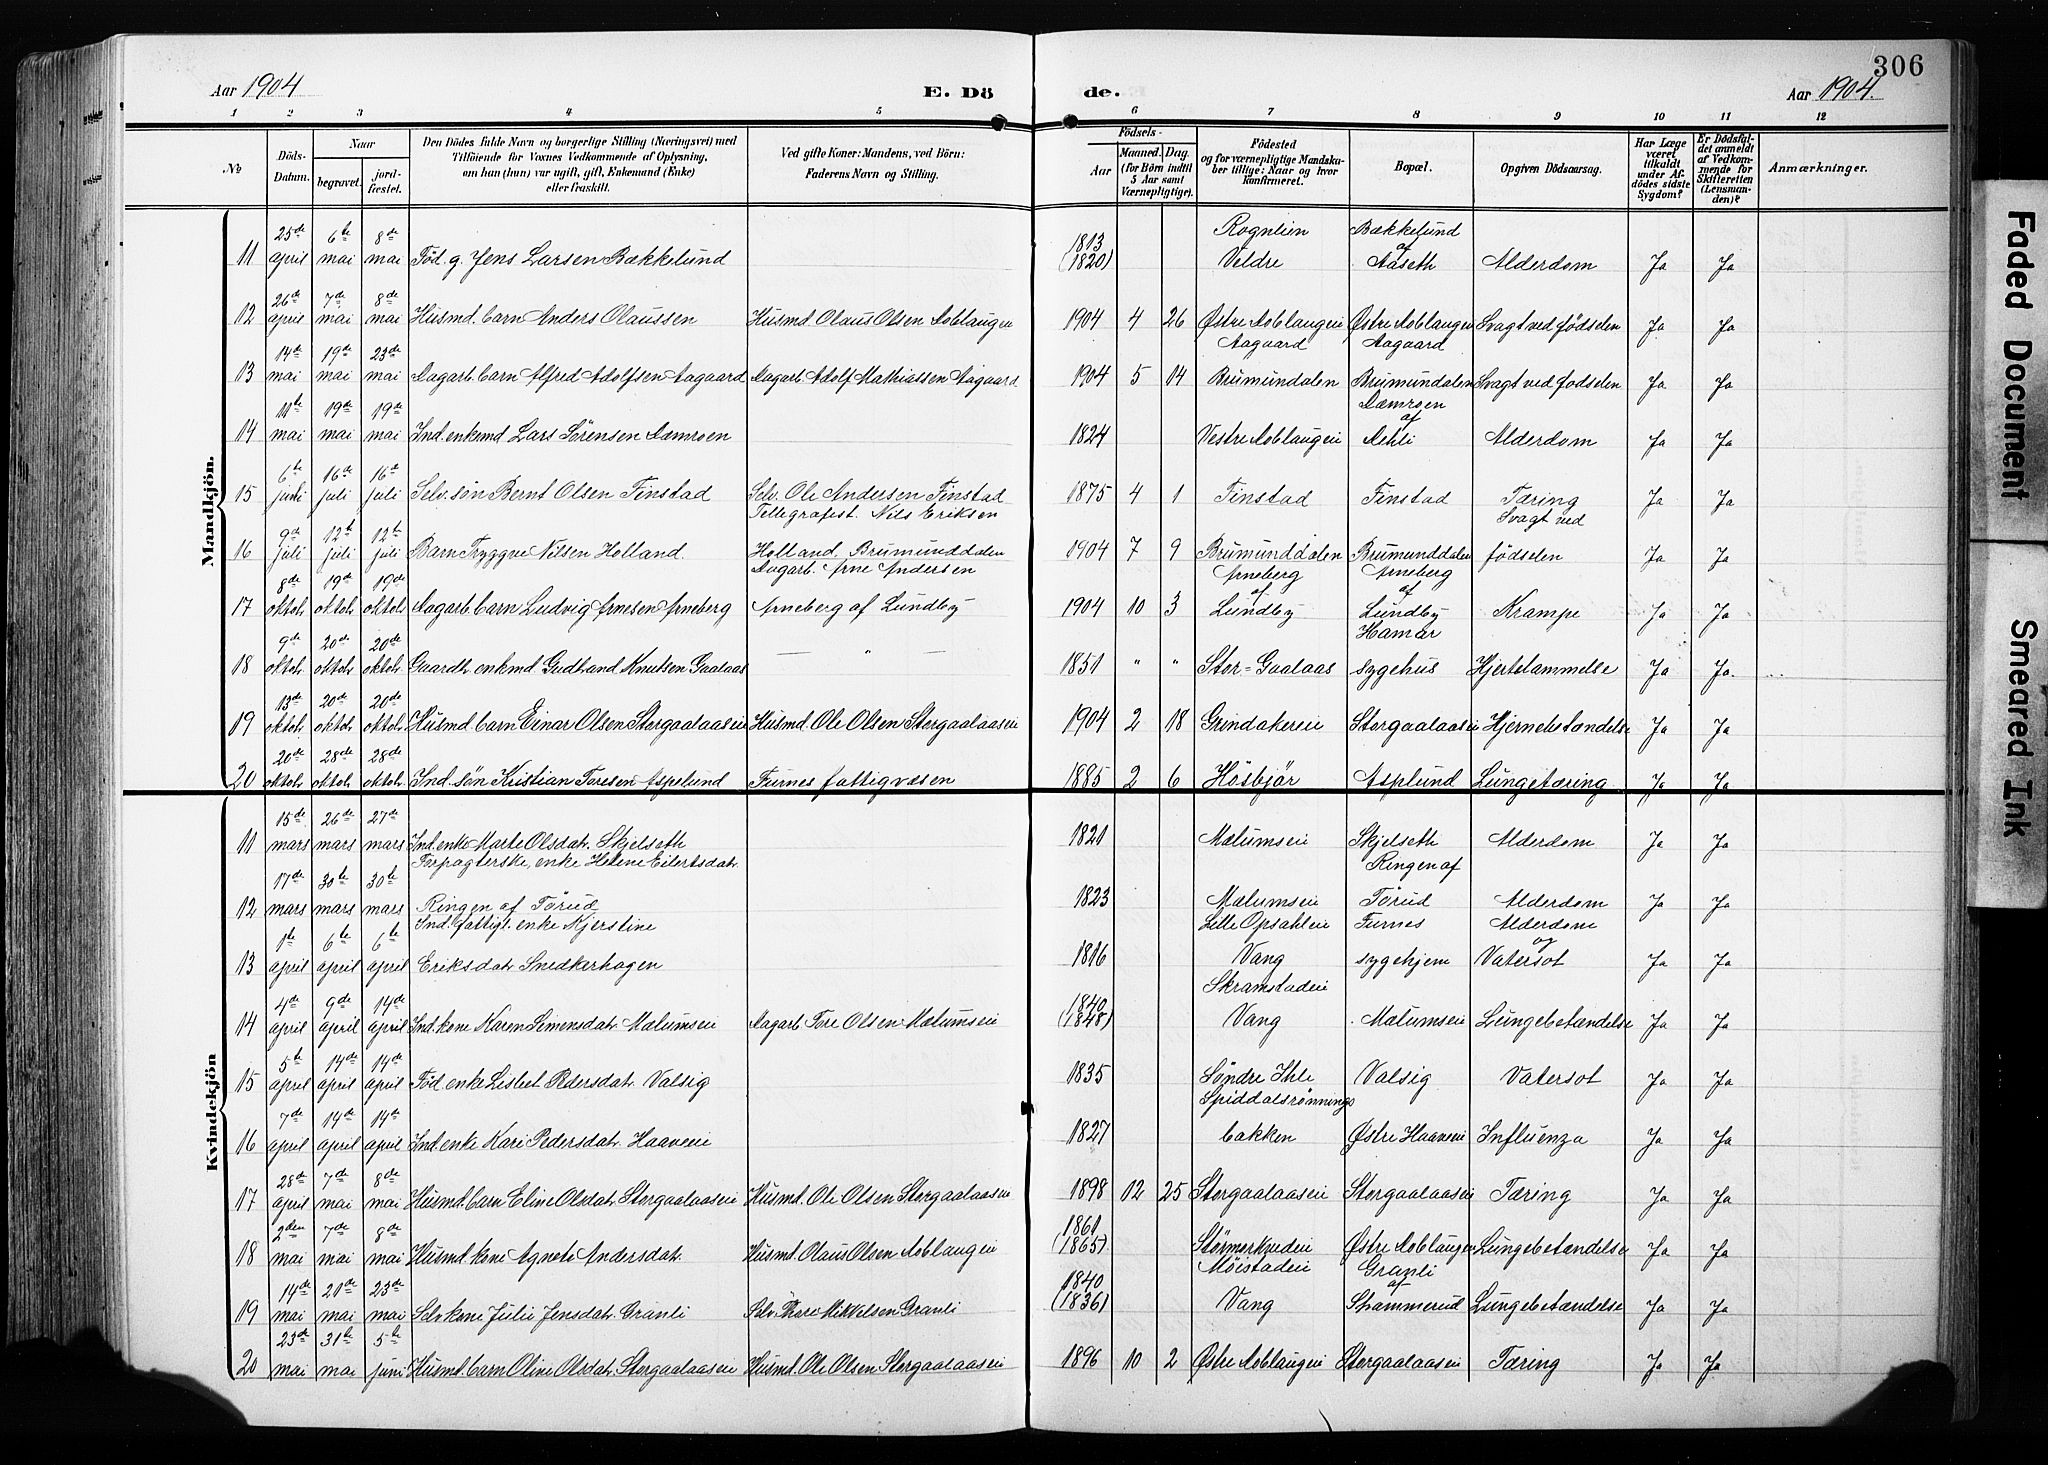 306
Aar 1904
E. Dö
de.
Aar 1904.
1 2 3 4 5 6 7 8 9 10 11 12
No
Döds-Datum.
Naar
begravet.
jordfæstet.
Den Dödes fulde Navn og borgerlige Stilling (Næringsvei) med
Tilföiende for Voxnes Vedkommende af Oplysning,
om han (hun) var ugift, gift, Enkemand (Enke)
eller fraskilt.
Ved gifte Koner: Mandens, ved Börn:
Faderens Navn og Stilling.
Födsels-
Aar
Maaned. Dag.
(for Börn indtil
5 Aar samt
Værnepligtige).
Födested
og for værnepligtige Mandskaber tillige: Naar og hvor
Konfirmeret.
Bopæl.
Opgiven Dödsaarsag.
Har Læge
været
tilkaldt
under Afdödes sidste
Sygdom?
Er Dödsfaldet anmeldt
af Vedkommende for
Skifteretten
(Lensmanden)?
Anmærkninger.
Mandkjön.
11 25de april 6te mai 8de mai Föd. g. Jens Larsen Bækkelund 1813 (1820) Rognlien Veldre Bækkelund af Aaseth Alderdom Ja Ja
12 26de april 7de mai 8de mai Husmd. barn Anders Olaussen Husmd. Olaus Olsen Aoblaugen 1904 4 26 Østre Aoblaugen Østre Aoblaugen Svagt ved födselen Ja Ja
13 14de mai 19de mai 23de mai Dagarb. barn Alfred Adolfsen Aagaard Dagarb. Adolf Mathiassen Aagaard 1904 5 14 Aagaard Brumundalen Aagaard Brumundalen Svagt ved födselen Ja Ja
14 11te mai 19de mai 19de mai Ind. enkemd Lars Sörensen Dæmroen 1824 Vestre Aoblaugen Dæmroen af Aehli Alderdom Ja Ja
15 6te juni 16de juli 16de juli Selv. sön Bernt Olsen Finstad Selv. Ole Andersen Finstad 1875 4 1 Finstad Finstad Tæring Ja Ja
16 9de juli 12te juli 12te juli Barn Tryggve Nilsen Holland. Tellegrafist. Nils Eriksen Holland, Brumunddalen 1904 7 9 Brumunddalen Brumunddalen Svagt ved födselen Ja Ja
17 8de oktob. 19de oktob. 19de oktob. Dagarb. barn Ludvig Arnesen Arneberg Dagarb. Arne Andersen Arneberg af Lundby 1904 10 3 Arneberg af Lundby Arneberg af Lundby Krampe Ja Ja
18 9de oktob. 20de oktob. 20de oktob. Gaardb. enkmd. Gudbrand Knutsen Gaalaas — " — 1851 " " Stor-Gaalaas Hamar sygehus Hjertelammelse Ja Ja.
19 13de oktob. 20de oktob. 20de oktob. Husmd. barn Einar Olsen Storgaalaaseie Husmd. Ole Olsen Storgaalaaseie 1904 2 18 Grindakereie Storgaalaaseie Hjernebetændelse Ja Ja
20 20de oktob. 28de oktob. 28de oktob. Ind. sön Kristian Toresen Aspelund Furnes fattigvæsen 1885 2 6 Hösbjör Asplund Lungetæring Ja Ja
Kvindekjön
11 15de mars 26de mars 27de mars Ind. enke Marte Olsdatr. Skjelseth 1821 Mælumseie Skjelseth Alderdom Ja Ja
12 17de mars 30te mars 30te mars Forpagterske, enke Helene Eilertsdatr. Ringen af Törud 1823 Mælumseie Ringen af Törud Alderdom Ja Ja
13 1te april 6te april 6te april Ind. fattigl. enke Kjerstine Eriksdatr. Snedkerhagen 1816 Lille Opsahleie Vang Furnes sygehjem Alderdom og Vatersot Ja Ja
14 4de april 9de april 14de april Ind. kone Karen Simensdatr. Mælumseie Dagarb. Tore Olsen Mælumseie 1840 (1848) Skramstadeie Vang Mælumseie Lungebetændelse Ja Ja
15 5te april 14de april 14de april Föd. enke Lisbet Pedersdatr. Valsig 1835 Söndre Ihle Valsig Vatersot Ja Ja
16 7de april 14de april 14de april Ind. enke Kari Pedersdatr. Haaveeie 1827 Spiddalsrönningsbakken Østre Haaveeie Influenza Ja Ja
17 28de april 7de mai 8de mai Husmd. barn Eline Olsdatr. Storgaalaaseie Husmd. Ole Olsen Storgaalaaseie 1898 12 25 Storgaalaaseie Storgaalaaseie Tæring Ja Ja
18 2den mai 7de mai 8de mai Husmd. kone Agnete Andersdatr. Husmd. Olaus Olsen Aoblaugen 1861 (1865) Störmerkrudeie Østre Aoblaugen Lungebetændelse Ja Ja
19 14de mai 20de mai 23de mai Selv. kone Julie Jensdatr. Granli Selv. Thore Mikkelsen Granli 1840 (1836) Möistadeie Vang Granli af Skammerud Lungebetændelse Ja Ja
20 23de mai 31te mai 5te juni Husmd. barn Oline Olsdatr. Storgaalaaseie Husmd. Ole Olsen Storgaalaaseie 1896 10 2 Østre Aoblaugen Storgaalaaseie Tæring Ja Ja
Faded Document
Smeared Ink